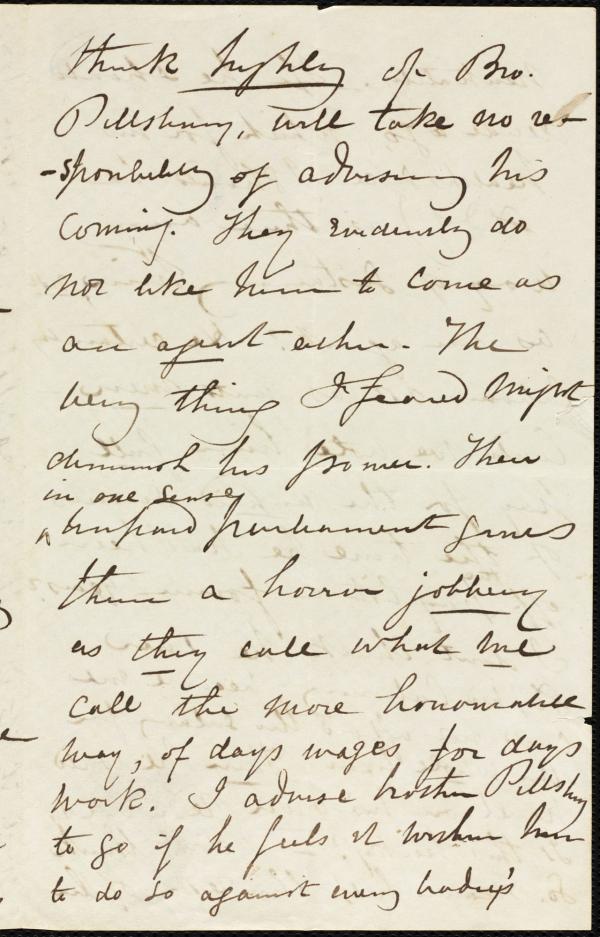 think highly of Bro.
Pillsbury, will take no re-
-sponsibility of advising his
coming. They evidently do
not like him to come as
an agent either. The
very thing I feared might
diminish his power. Their
in one sense
^ unpaid parliament gives
them a horror jobbery
as they call what we
call the more honourable
way, of days wages for days
work. I advise brother Pillsbury
to go if he feels it within him
to do so against every bodies